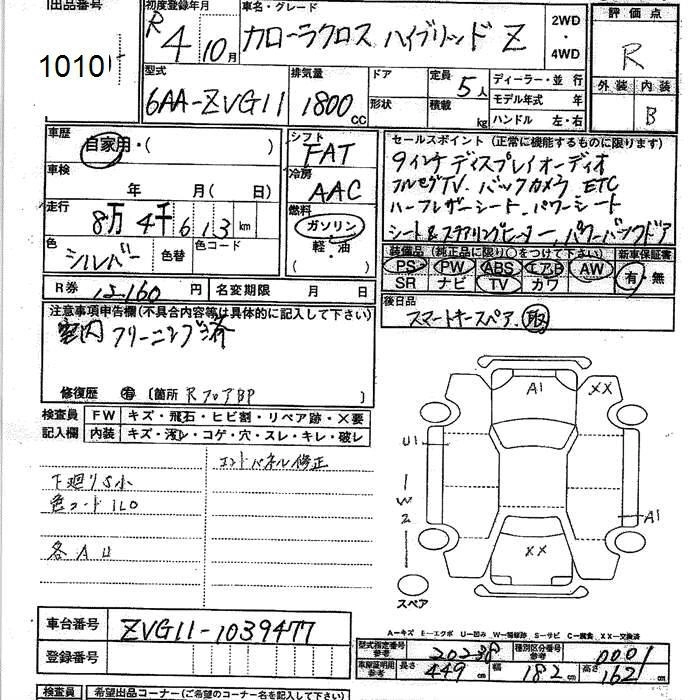 出品番号 初度登録年月 車名・グレード 2WD 評価点
1010 R4 10月 カローラクロス ハイブリッド Z ・ R
4WD
型式 排気量 ドア 定員 ディーラー・並行 外装 内装
6AA-ZVG11 1800 CC 5人 モデル年式 年 B
形状 積載 kg ハンドル 左・右
車歴 自家用・( ) シフト FAT セールスポイント (正常に機能するものに限ります)
車検 年 月( 日) 冷房 AAC 9インチディスプレイオーディオ
フルセグTV. バックカメラ ETC
走行 8万 4千 613 km 燃料 ガソリン ハーフレザーシート. パワーシート
色 シルバー 色替 色コード 軽・油 シート&ステアリングヒーター, パワーバックドア
( )
装備品 (純正品に限り○をつけて下さい) 新車保証書
PS PW ABS エアB AW 有・無
SR ナビ TV カワ
R券 12160 円 名変期限 月 日 後日品
スマートキースペア. 取
注意事項申告欄(不具合内容等は具体的に記入して下さい)
室内クリーニング済
修復歴 有 〔箇所 RフロアBP
検査員 FW キズ・飛石・ヒビ割・リペア跡・X要
記入欄 内装 キズ・汚レ・コゲ・穴・スレ・キレ・破レ
エンドパネル修正
下廻りS小
色コード 1L0
各 A U
A1 XX
U1
W2
A1
XX
スペア
A―キズ E―エクボ U―凹み W―補修跡 S―サビ C―腐食 XX―交換済
車台番号 ZVG11-1039477
登録番号
型式指定番号 参考 20238 種別区分番号 参考 0001
車庫証明用 参考 長さ 449 cm 幅 182 cm 高さ 162 cm
検査員 希望出品コーナー(ご希望のコーナー名を記入して下さい)